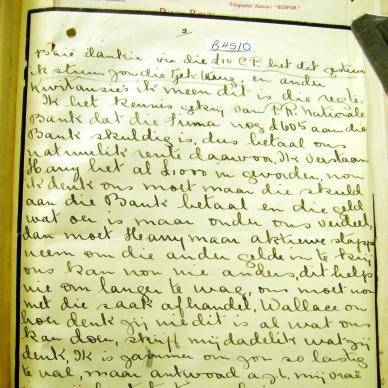 Telegraphic Address: "BOSFOR."
2
B4510
Baie dankie vir die £10 C.P. het dit gestuur
ik stuur jou die Tjek terug, en ander
Kwitansies ik meen dit is die regte.
Ik het kennis gekry van P.R. Nationale
Bank dat die firma nog £1605 aan die
Bank skuldig is, dus betaal ons
natuurlik rente daarvoor, Ik verstaan
Harry het al £1000 in gevorder, nou
ik denk ons moet maar die skuld
aan die Bank betaal en die geld
wat oor is maar onder ons verdeel,
dan moet Harry maar aktiewe stappe
neem om die ander gelde in te kry
ons kan nou nie anders, dit help
nie om langer te wag, ons moet nou
met die saak afhandel, Wallace en
hoe denk jy nie dit is al wat ons
kan doen, skryf my dadelik wat jy
denk, Ik is jammer om jou so lastig
te val maar antwoord a.g.t. my vraë